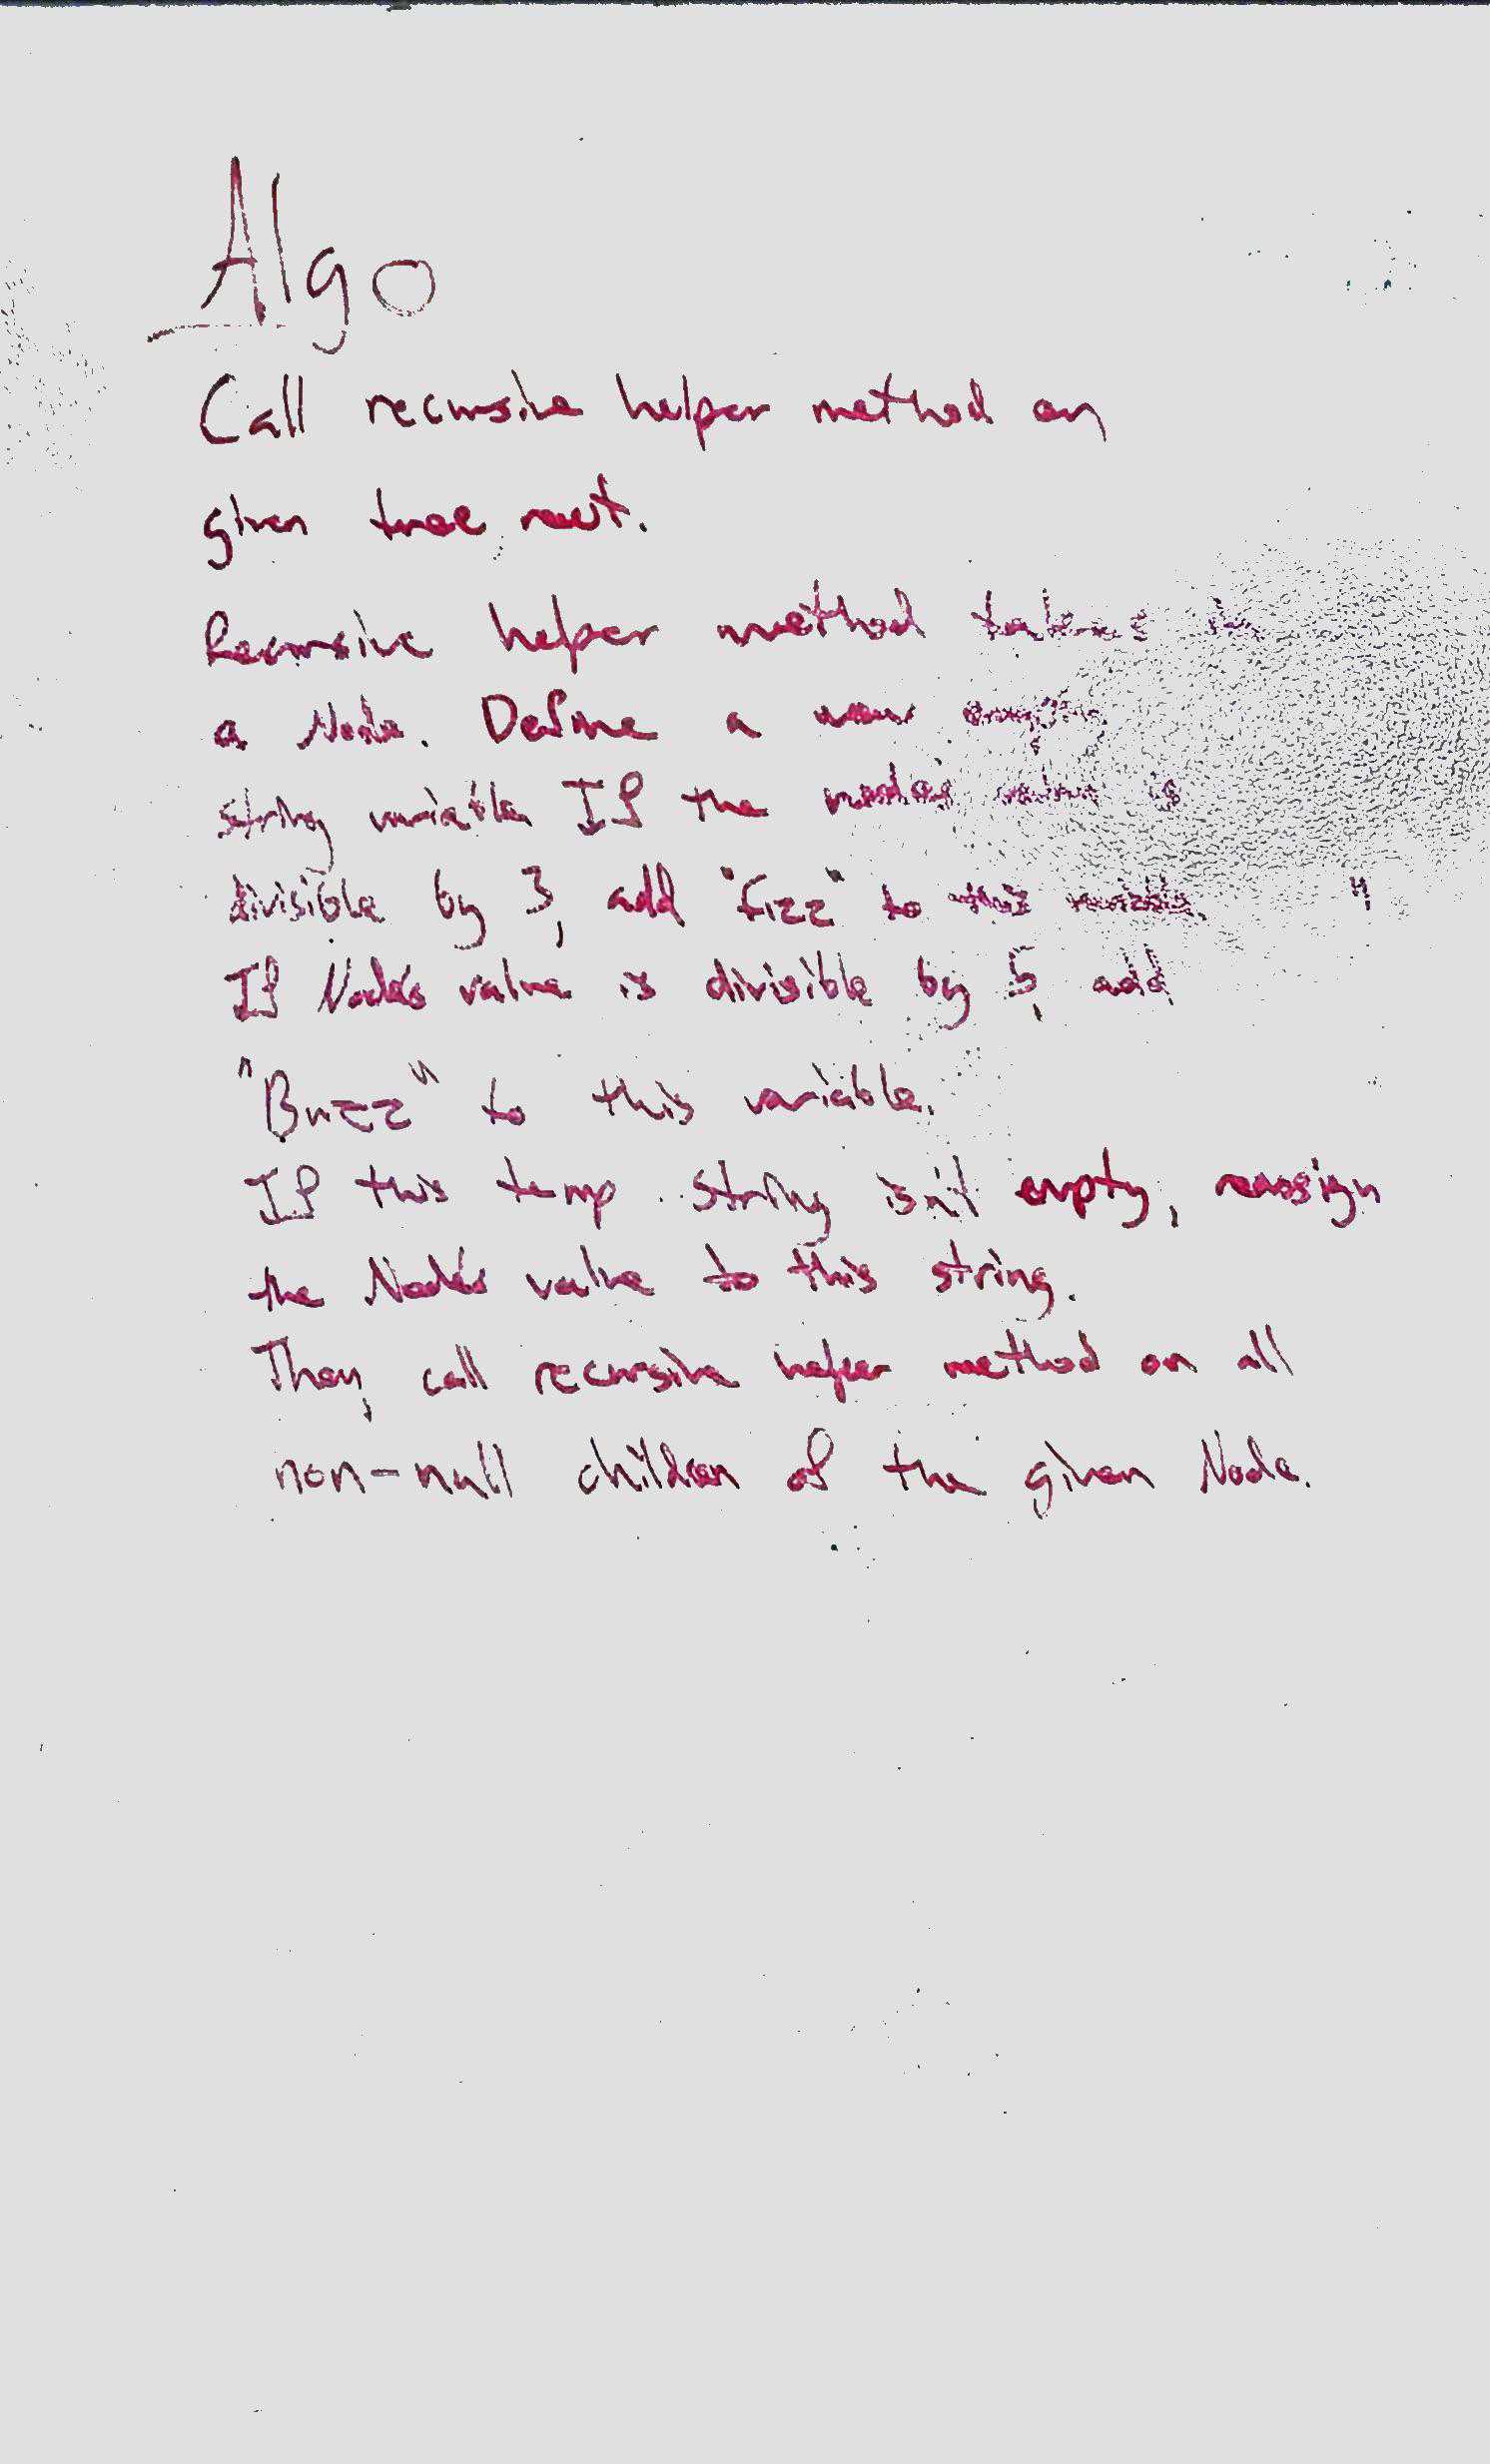 Algo
Call recursive helper method on
given tree root.
Recursive helper method takes in
a Node. Define a new empty
string variable If the node's value is
divisible by 3, add "Fizz" to this variable. "
If Node's value is divisible by 5, add
"Buzz" to this variable.
If this temp string isn't empty, reassign
the Node's value to this string.
Then, call recursive helper method on all
non-null children of the given Node.